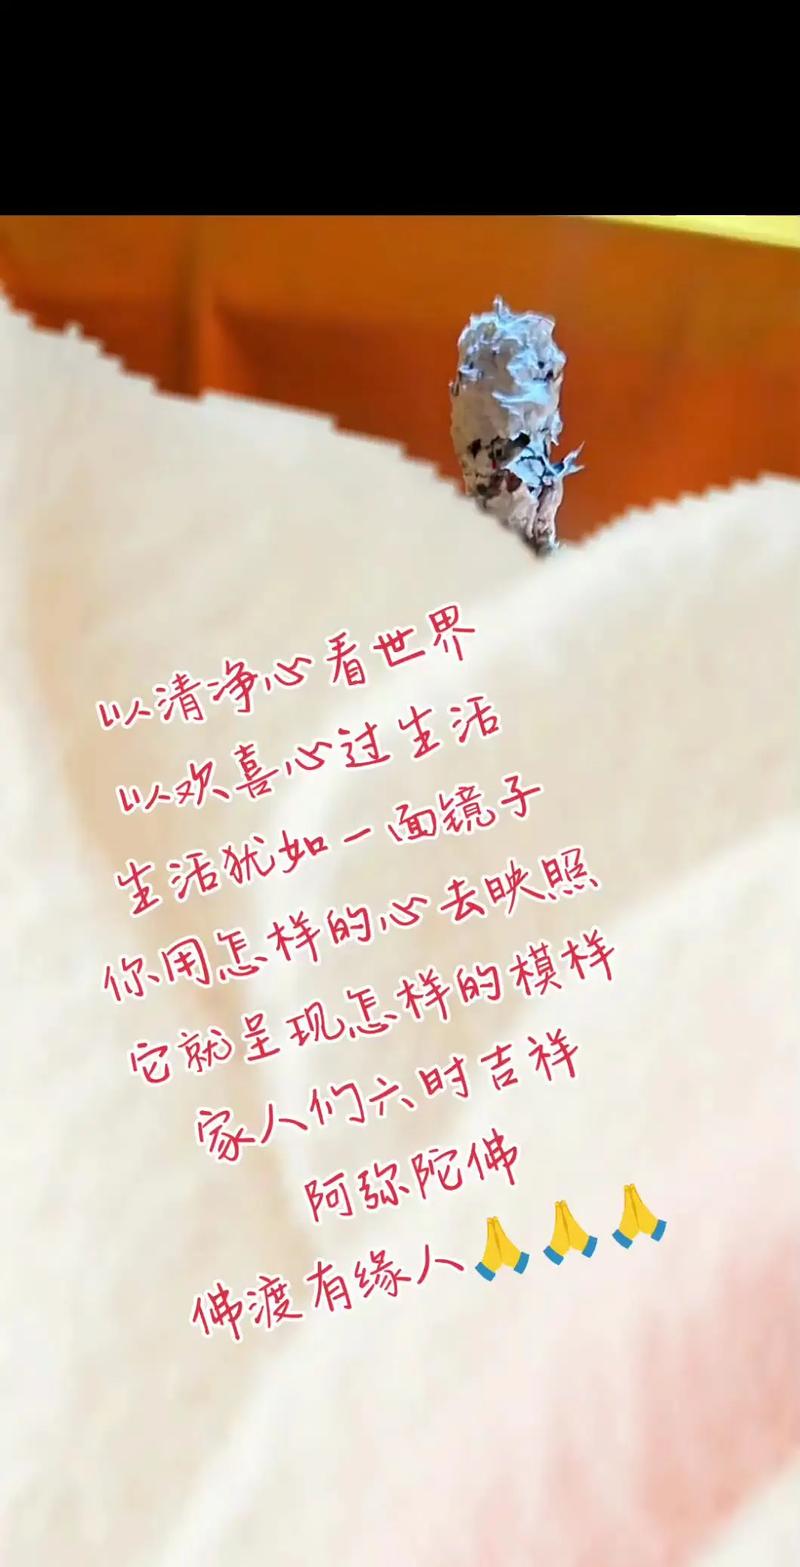 以清净心看世界
以欢喜心过生活
生活犹如一面镜子
你用怎样的心去映照
它就呈现怎样的模样
家人们六时吉祥
阿弥陀佛
佛渡有缘人🙏🙏🙏